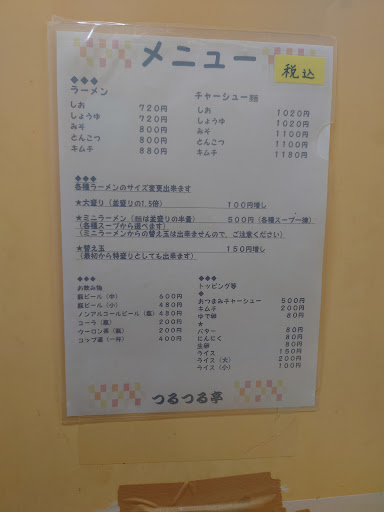 メニュー
税込
◆◆◆
ラーメン
しお 720円
しょうゆ 720円
みそ 800円
とんこつ 800円
キムチ 880円
チャーシュー麺
しお 1020円
しょうゆ 1020円
みそ 1100円
とんこつ 1100円
キムチ 1180円
◆◆◆
各種ラーメンのサイズ変更出来ます
★大盛り（並盛りの1.5倍） 100円増し
★ミニラーメン（麺は並盛りの半量） 500円（各種スープ一律）
（各種スープから選べます）
（ミニラーメンからの替え玉は出来ませんので、ご注意ください）
★替え玉 150円増し
（最初から特盛りとしても出来ます）
◆◆◆
お飲み物
瓶ビール（中） 600円
瓶ビール（小） 480円
ノンアルコールビール（瓶） 480円
コーラ（瓶） 200円
ウーロン茶（瓶） 200円
コップ酒（一杯） 400円
◆◆◆
トッピング等
★
おつまみチャーシュー 500円
キムチ 200円
ゆで卵 80円
★
バター 80円
にんにく 80円
生卵 80円
ライス 150円
ライス（大） 200円
ライス（小） 100円
つるつる亭